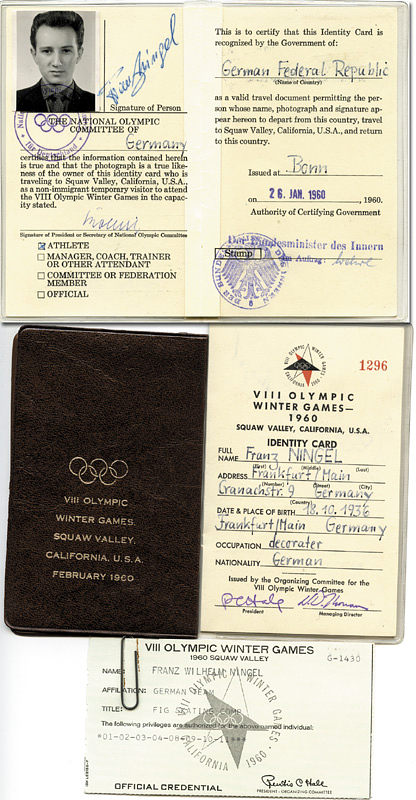 Franz Ningel
Signature of Person
THE NATIONAL OLYMPIC
COMMITTEE OF
Germany
certifies that the information contained herein
is true and that the photograph is a true like-
ness of the owner of this identity card who is
traveling to Squaw Valley, California, U.S.A.,
as a non-immigrant temporary visitor to attend
the VIII Olympic Winter Games in the capac-
ity stated.
Signature of President or Secretary of National Olympic Committee
ATHLETE
MANAGER, COACH, TRAINER
OR OTHER ATTENDANT
COMMITTEE OR FEDERATION
MEMBER
OFFICIAL
für Deutschland
This is to certify that this Identity Card is
recognized by the Government of:
German Federal Republic
(Name of Country)
as a valid travel document permitting the per-
son whose name, photograph and signature
appear hereon to depart from this country, travel
to Squaw Valley, California, U.S.A., and return
to this country.
Issued at Bonn
on 26. JAN. 1960, 1960.
Authority of Certifying Government
Der Bundesminister des Innern
Stamp
Im Auftrag:
VIII OLYMPIC
WINTER GAMES,
SQUAW VALLEY,
CALIFORNIA, U.S.A.
FEBRUARY 1960
VIII OLYMPIC WINTER GAMES
CALIFORNIA 1960
1296
VIII OLYMPIC
WINTER GAMES—
1960
SQUAW VALLEY, CALIFORNIA, U.S.A.
IDENTITY CARD
FULL NAME Franz NINGEL
(First) (Middle) (Last)
ADDRESS Frankfurt/Main
(Number) (Street) (City)
Cranachstr. 9 Germany
(Country)
DATE & PLACE OF BIRTH 18.10.1936
Frankfurt/Main Germany
OCCUPATION decorater
NATIONALITY German
Issued by the Organizing Committee for the
VIII Olympic Winter Games
President Managing Director
VIII OLYMPIC WINTER GAMES
1960 SQUAW VALLEY G-1430
NAME: FRANZ WILHELM NINGEL
AFFILIATION: GERMAN TEAM
TITLE: FIG SKATING COMP
The following privileges are authorized for the above named individual:
*01-02-03-04-08-09-10-11***
VIII OLYMPIC WINTER GAMES
CALIFORNIA 1960
OFFICIAL CREDENTIAL
Prentis C Hale
PRESIDENT - ORGANIZING COMMITTEE